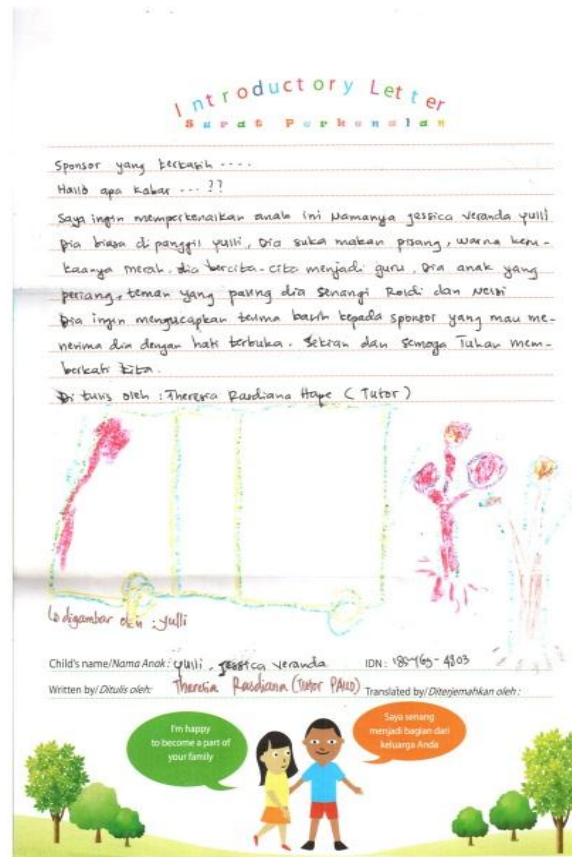 Introductory Letter
Surat Perkenalan
Sponsor yang terkasih ....
Hallo apa kabar ... ??
Saya ingin memperkenalkan anak ini Namanya jessica veranda yulli
Dia biasa di panggil yulli, Dia suka makan pisang, warna kesu-
kaanya merah, dia bercita-cita menjadi guru, Dia anak yang
periang, teman yang paling dia senangi Rosdi dan
Dia ingin mengucapkan terima kasih kepada sponsor yang mau me-
nerima dia dengan hati terbuka. Sekian dan semoga Tuhan mem-
berkati kita.
Di tulis oleh : Theresia Rasdiana Hape ( Tutor )
digambar oleh : yulli
Child's name/Nama Anak : yulli, jessica veranda IDN :
Written by/Ditulis oleh: Theresia Rasdiana (Tutor PAUD) Translated by/Diterjemahkan oleh :
I'm happy
to become a part of
your family
Saya senang
menjadi bagian dari
keluarga Anda